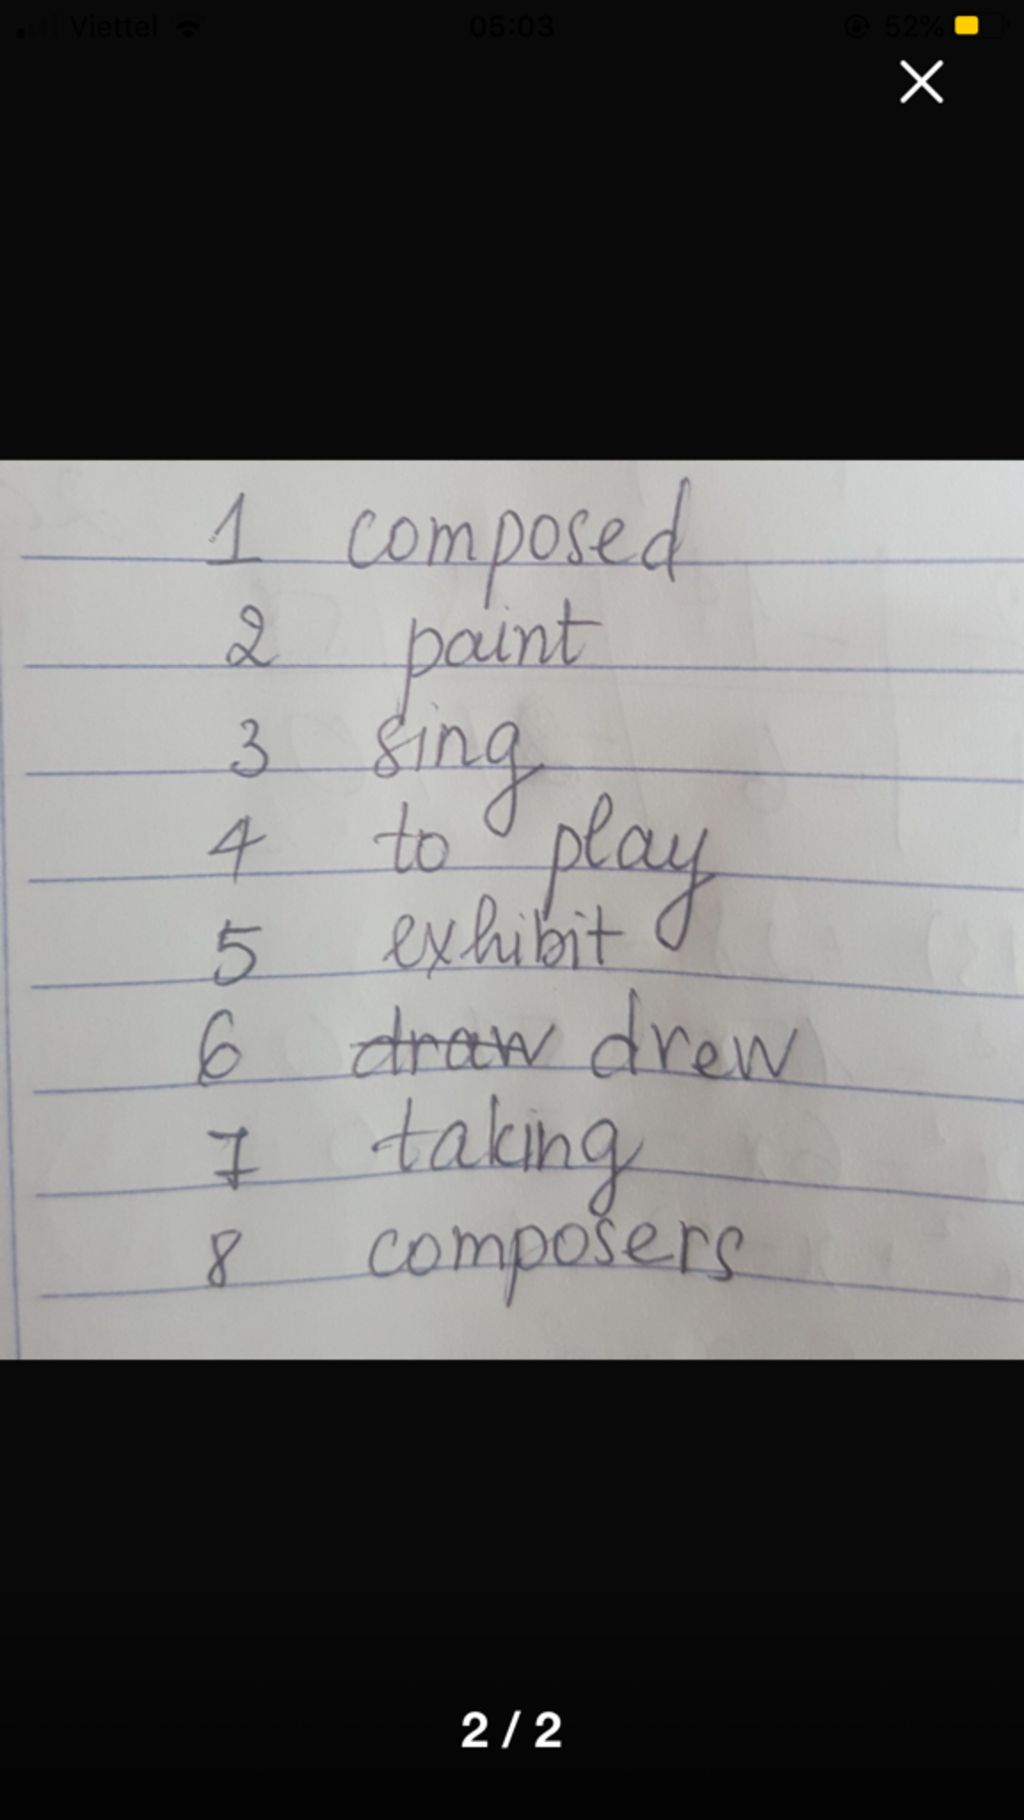 Viettel 05:03 52%
1 composed
2 paint
3 sing
4 to play
5 exhibit
6 draw drew
7 taking
8 composers
2 / 2